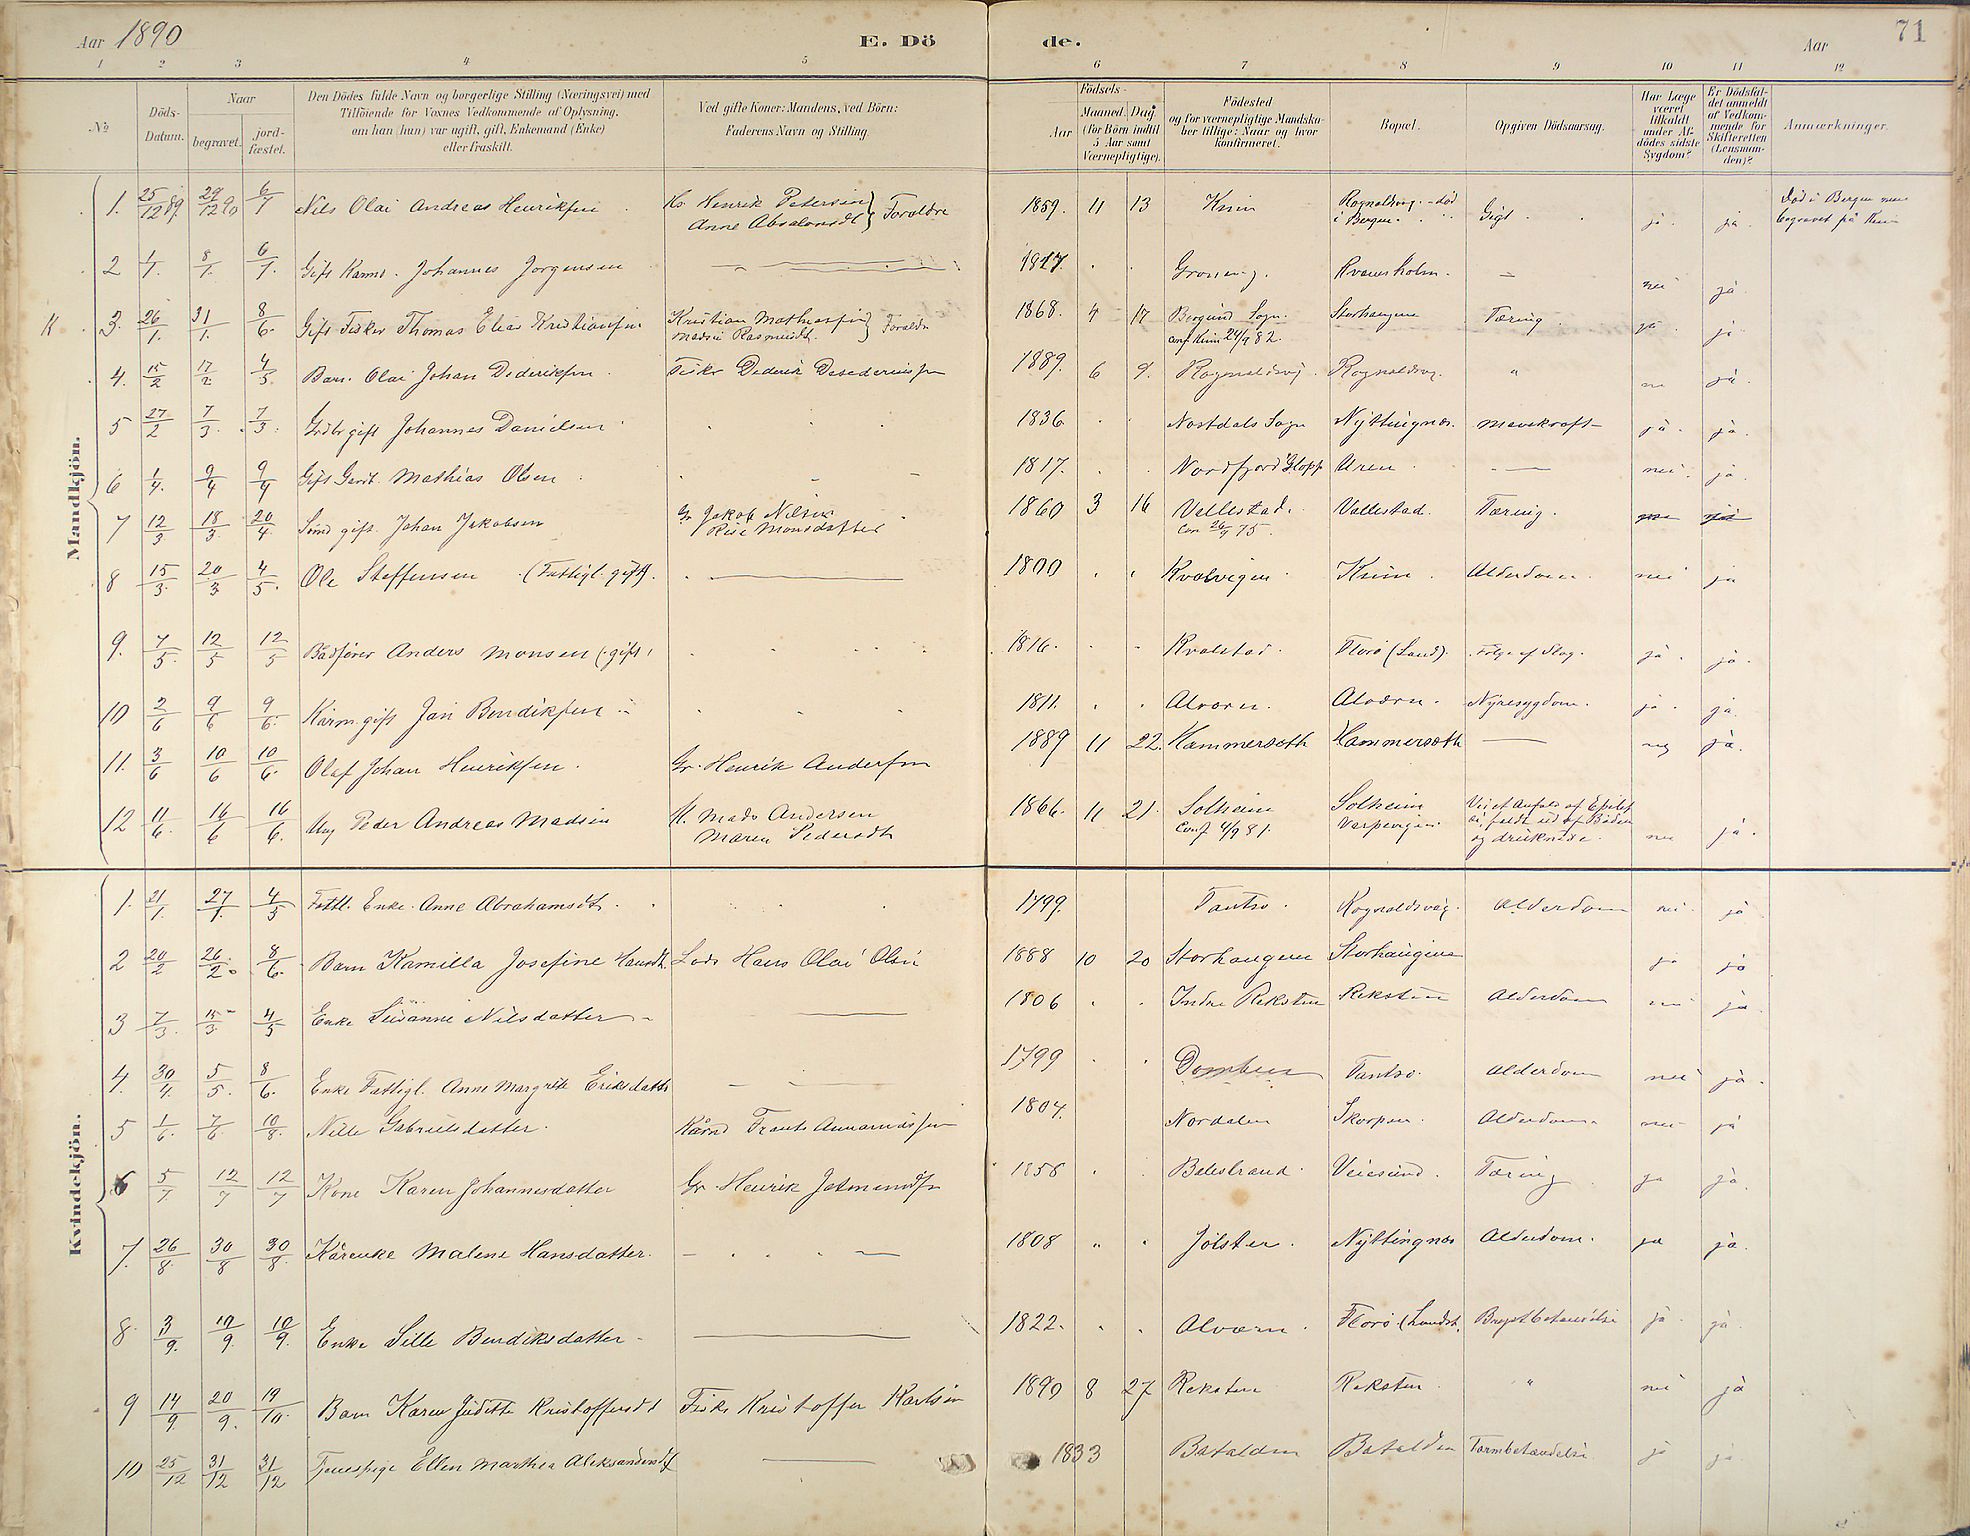 Aar 1890 E. Dö de. Aar 71
1 2 3 4 5 6 7 8 9 10 11 12
No
Döds-Datum.
Naar
begravet.
jord-fæstet.
Den Dödes fulde Navn og borgerlige Stilling (Næringsvei) med
Tilföiende for Voxnes Vedkommende af Oplysning,
om han (hun) var ugift, gift, Enkemand (Enke)
eller fraskilt.
Ved gifte Koner: Mandens, ved Börn:
Faderens Navn og Stilling.
Födsels-
Aar
Maaned. Dag.
(for Börn indtil
5 Aar samt
Værnepligtige).
Födested
og for værnepligtige Mandska-
ber tillige: Naar og hvor
konfirmeret.
Bopæl.
Opgiven Dödsaarsag.
Har Læge
været
tilkaldt
under Af-
dödes sidste
Sygdom?
Er Dödsfal-
det anmeldt
af Vedkom-
mende for
Skifteretten
(Lensman-
den)?
Anmærkninger.
Mandkjön.
1. 25/12 89. 29/12 90 6/1 Nils Olai Andreas Henriksen Henrik Petersen Anne Absalonsdt } Forældre 1859. 11 13 Kinn Rognaldsvåg - död i Bergen Gigt ja. ja. Död i Bergen men begravet på Kinn
2 1/1. 8/1. 6/1. Gift Kaarm. Johannes Jorgensen 1827. Groneng. Kvansholm. nei ja
K 3. 26/1. 31/1. 8/6. Gift Fisker Thomas Elias Kristiansen Kristian Mathiassen Madsii Rasmusdt. } Foræld 1868. 4 17 Bergund Sogn. conf Kinn 24/9 82. Storhaugene Tæring. ja ja
4. 15/2 17/2 4/5 Barn. Olai Johan Dideriksen Fisker Diderik Desideriussen 1889. 6 9. Rognaldsvåg Rognaldsvåg. " ja.
5 27/2 7/3. 7/3. Grdbr gift Johannes Danielsen 1836 Nastdals Sogn Nyttingnæs. Mavekræft ja. ja.
6 1/4. 9/4 9/4 Gift Gardb. Mathias Olsen 1817. Nordfjord Glopp Uren nei. ja
7 12/3 18/3. 20/4. gift. Johan Jakobsen Gr Jakob Nilsen Monsdatter 1860 3 16 Vallestad. Con 26/9 75. Vallestad. Tæring. ja
8 15/3. 20/3 4/5. Ole Steffensen (Fattigl. gift). 1800 Kvalvigen Kinn. Alderdom. nei ja
9. 7/5. 12/5 12/5 Bådförer Anders Monsen (gift) 1816. Kvalstad. Florö (Land). Fölge af Slag. ja. ja.
10 2/6 9/6 9/6. Kårm. gift Jan Bendiksen 1811. Alværn. Alværn. Nyresygdom. ja. ja.
11. 3/6 10/6 10/6. Olaf Johan Henriksen. Gr. Henrik Andersen 1889 11 22. Hammersæth Hammersæth ja.
12 11/6. 16/6 16/6. Ung Peder Andreas Madsen Mads Andersen Maren Pedersdt 1866. 11 21. Solheim Conf 4/9 81. Solheim Varpevigen. Ved et Anfald af Epilepsi, faldt ud af Båden og druknede. nei ja.
Kvindekjön.
1. 21/1. 27/1. 4/5 Fattl. Enke. Anne Abrahamsdt. 1799. Tansö. Rognaldsvåg. Alderdom nei. ja
2 20/2 26/2. 8/6. Barn Kamilla Josefine Hansdt. Lods Hans Olai Olsen 1888 10 20 Storhaugene Storhaugene ja ja
3 7/3. 15/3. 4/5 Enke Süsanne Nilsdatter 1806 Indre Reksten Reksten Alderdom ja.
4. 30/4. 5/5. 8/6. Enke Fattigl. Anne Margrete Eriksdatter 1799 Domben Tansö. Alderdom nei ja.
5 1/6. 7/6. 10/8. Nille Gabrielsdatter. Kårmd Frants Annaniassen 1804. Nordalen Skorpen. Alderdom nei ja
6 5/7 12/7 12/7 Kone Karen Johannesdatter Gr. Henrik Jetmundsen 1858 Balestrand. Veiesund. Tæring ja ja.
7. 26/8. 30/8 30/8. Kårenke Malene Hansdatter. 1808 Jölster. Nyttingnæs Alderdom. ja ja.
8. 3/9. 10/9. 10/9. Enke Sille Bendiksdatter 1822. Alværn. Florö (Landst. Brystbetændelse ja. ja.
9 14/9. 20/9. 19/10. Barn Karen Juditte Kristoffersdt Fisker Kristoffer Karlsen 1890 8 27 Reksten Reksten " nei ja
10 25/12 31/12 31/12 Tjenestpige Ellen Marthea Aleksandersdt 1833 Batalden Batalden Tarmbetændelse ja ja